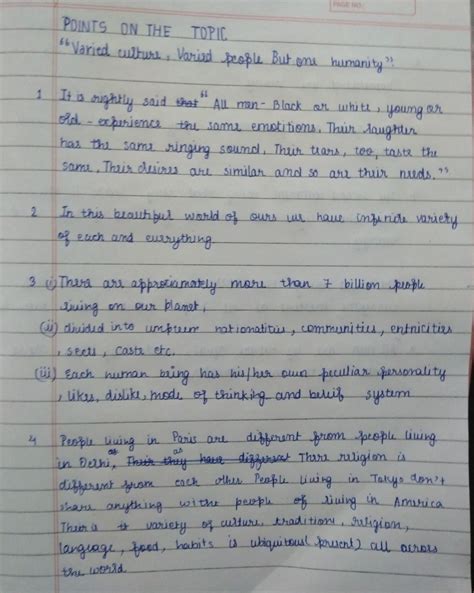 PAGE NO.:
POINTS ON THE TOPIC
"Varied culture, Varied people But one humanity".
1 It is rightly said that "All man - Black or white, young or
old - experience the same emotitions. Their laughter
has the same ringing sound. Their tears, too, taste the
same. Their desires are similar and so are their needs."
2 In this beautiful world of ours we have infinite variety
of each and everything
3 (i) There are approximately more than 7 billion people
living on our planet,
(ii) divided into nationalities, communities, entnicities
, sects, caste etc.
(iii) Each human being has his/her own peculiar personality
, likes, dislike, mode of thinking and system
4 People living in Paris are different from people living
in Delhi, as Their they have different as There religion is
different from each other People living in Tokyo don't
share anything withe people of living in America
There is variety of culture, tradition, religion,
language, food, habits is ubiquitous (present) all across
the world.